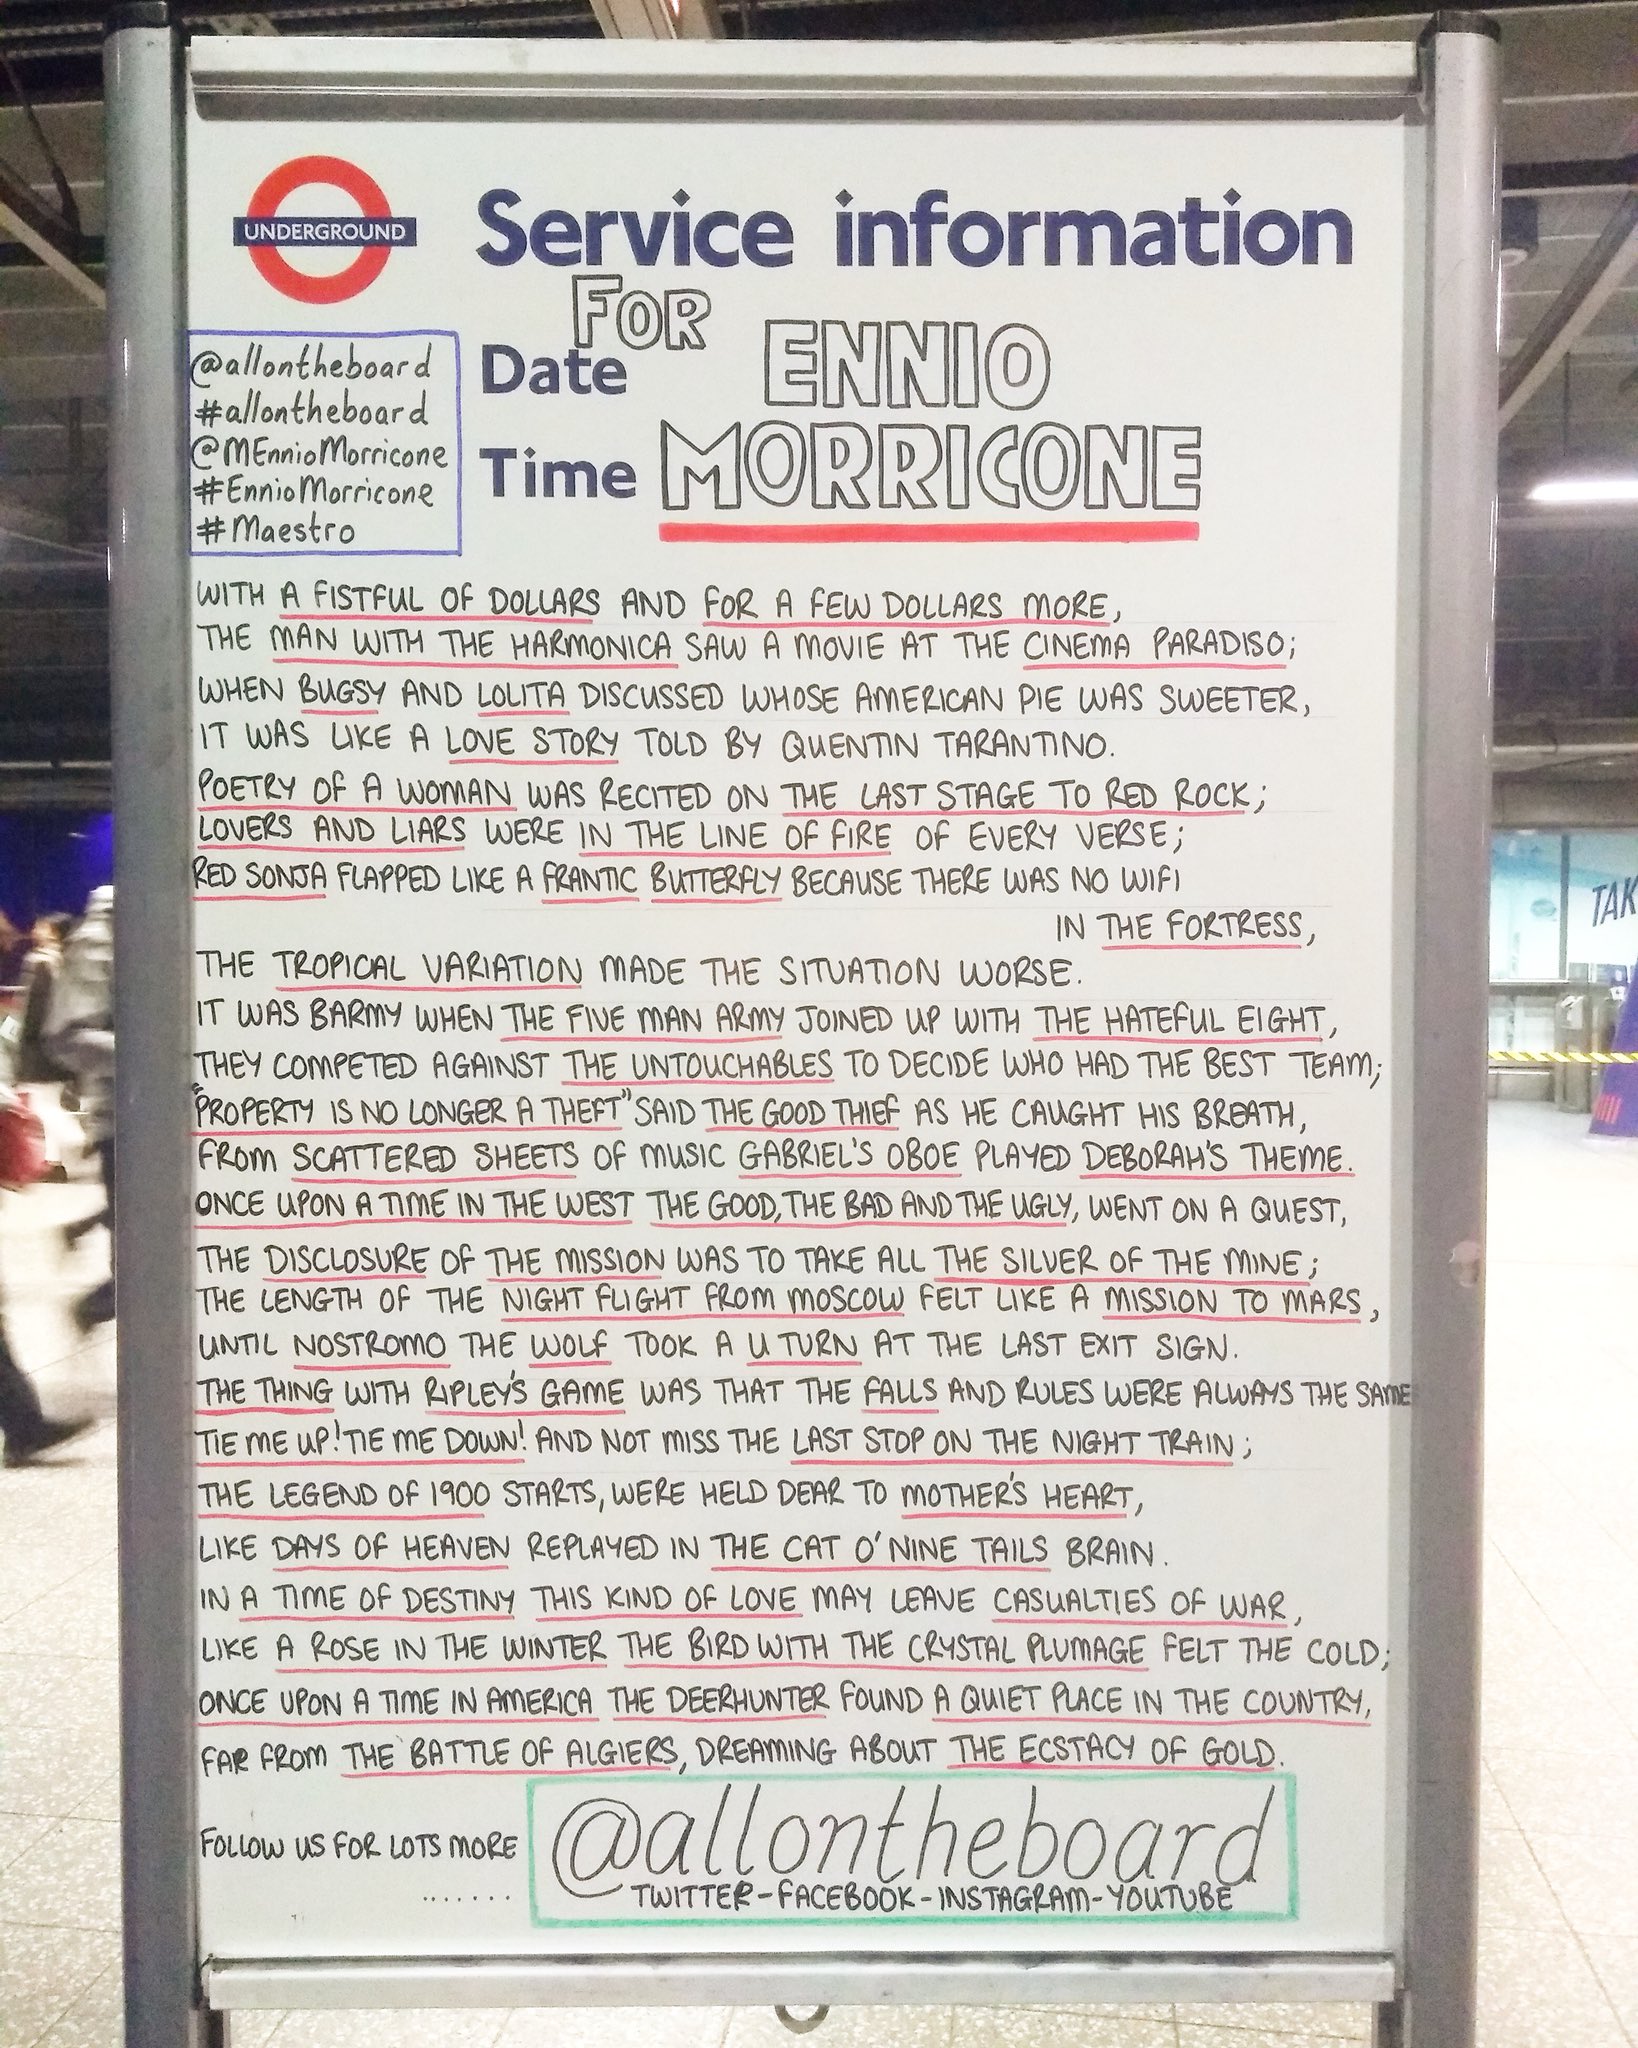 UNDERGROUND
Service information
FOR
Date ENNIO
Time MORRICONE
@allontheboard
#allontheboard
@MEnnioMorricone
#EnnioMorricone
#Maestro
WITH A FISTFUL OF DOLLARS AND FOR A FEW DOLLARS MORE,
THE MAN WITH THE HARMONICA SAW A MOVIE AT THE CINEMA PARADISO;
WHEN BUGSY AND LOLITA DISCUSSED WHOSE AMERICAN PIE WAS SWEETER,
IT WAS LIKE A LOVE STORY TOLD BY QUENTIN TARANTINO.
POETRY OF A WOMAN WAS RECITED ON THE LAST STAGE TO RED ROCK;
LOVERS AND LIARS WERE IN THE LINE OF FIRE OF EVERY VERSE;
RED SONJA FLAPPED LIKE A FRANTIC BUTTERFLY BECAUSE THERE WAS NO WIFI
IN THE FORTRESS,
THE TROPICAL VARIATION MADE THE SITUATION WORSE.
IT WAS BARMY WHEN THE FIVE MAN ARMY JOINED UP WITH THE HATEFUL EIGHT,
THEY COMPETED AGAINST THE UNTOUCHABLES TO DECIDE WHO HAD THE BEST TEAM;
"PROPERTY IS NO LONGER A THEFT" SAID THE GOOD THIEF AS HE CAUGHT HIS BREATH,
FROM SCATTERED SHEETS OF MUSIC GABRIEL'S OBOE PLAYED DEBORAH'S THEME.
ONCE UPON A TIME IN THE WEST THE GOOD, THE BAD AND THE UGLY, WENT ON A QUEST,
THE DISCLOSURE OF THE MISSION WAS TO TAKE ALL THE SILVER OF THE MINE;
THE LENGTH OF THE NIGHT FLIGHT FROM MOSCOW FELT LIKE A MISSION TO MARS,
UNTIL NOSTROMO THE WOLF TOOK A U TURN AT THE LAST EXIT SIGN.
THE THING WITH RIPLEY'S GAME WAS THAT THE FALLS AND RULES WERE ALWAYS THE SAME
TIE ME UP! TIE ME DOWN! AND NOT MISS THE LAST STOP ON THE NIGHT TRAIN;
THE LEGEND OF 1900 STARTS, WERE HELD DEAR TO MOTHER'S HEART,
LIKE DAYS OF HEAVEN REPLAYED IN THE CAT O' NINE TAILS BRAIN.
IN A TIME OF DESTINY THIS KIND OF LOVE MAY LEAVE CASUALTIES OF WAR,
LIKE A ROSE IN THE WINTER THE BIRD WITH THE CRYSTAL PLUMAGE FELT THE COLD;
ONCE UPON A TIME IN AMERICA THE DEERHUNTER FOUND A QUIET PLACE IN THE COUNTRY,
FAR FROM THE BATTLE OF ALGIERS, DREAMING ABOUT THE ECSTACY OF GOLD.
FOLLOW US FOR LOTS MORE
.......
@allontheboard
TWITTER-FACEBOOK-INSTAGRAM-YOUTUBE